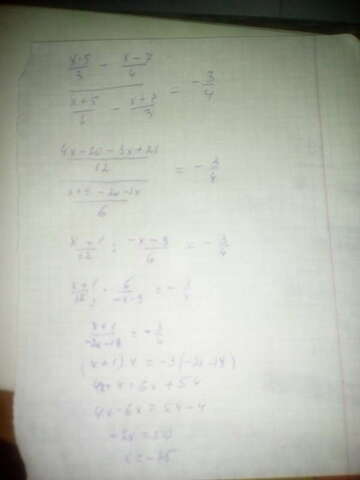 x-5/3 - x-7/4
x+5/2 - x+7/3 = -3/4
4x-20-3x+21/12
= -3/4
/6
x+1/12 : -x-9/6 = -3/4
x+1/12 · 6/-x-9 = -3/4
x+1/-2x-18 = -3/4
(x+1)·4 = -3(-2x-18)
4x+4=6x+54
4x-6x=54-4
-2x=50
x=-25